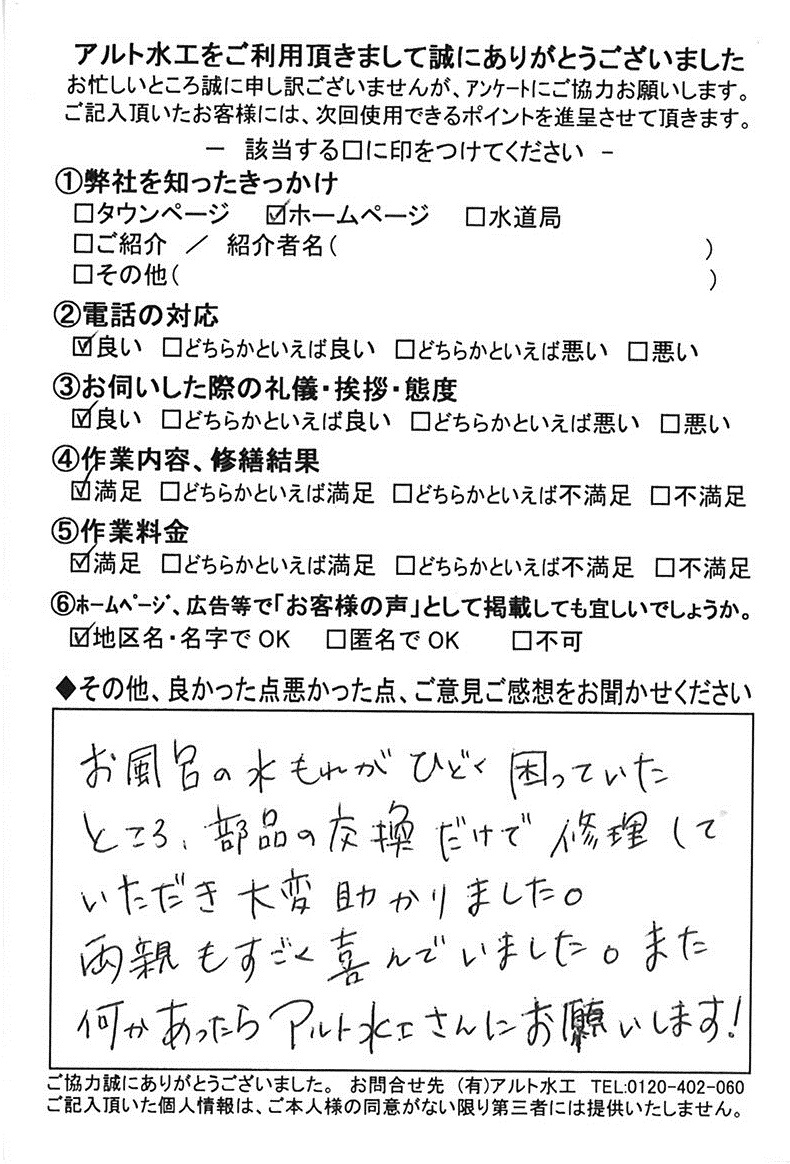 アルト水工をご利用頂きまして誠にありがとうございました
お忙しいところ誠に申し訳ございませんが、アンケートにご協力お願いします。
ご記入頂いたお客様には、次回使用できるポイントを進呈させて頂きます。
－ 該当する□に印をつけてください －
①弊社を知ったきっかけ
□タウンページ ☑ホームページ □水道局
□ご紹介 ／ 紹介者名( )
□その他( )
②電話の対応
☑良い □どちらかといえば良い □どちらかといえば悪い □悪い
③お伺いした際の礼儀・挨拶・態度
☑良い □どちらかといえば良い □どちらかといえば悪い □悪い
④作業内容、修繕結果
☑満足 □どちらかといえば満足 □どちらかといえば不満足 □不満足
⑤作業料金
☑満足 □どちらかといえば満足 □どちらかといえば不満足 □不満足
⑥ホームページ、広告等で「お客様の声」として掲載しても宜しいでしょうか。
☑地区名・名字でOK □匿名でOK □不可
◆その他、良かった点悪かった点、ご意見ご感想をお聞かせください
お風呂の水もれがひどく困っていた
ところ、部品の交換だけで修理して
いただき大変助かりました。
両親もすごく喜んでいました。また
何かあったらアルト水工さんにお願いします!
ご協力誠にありがとうございました。 お問合せ先 (有)アルト水工 TEL:0120-402-060
ご記入頂いた個人情報は、ご本人様の同意がない限り第三者には提供いたしません。